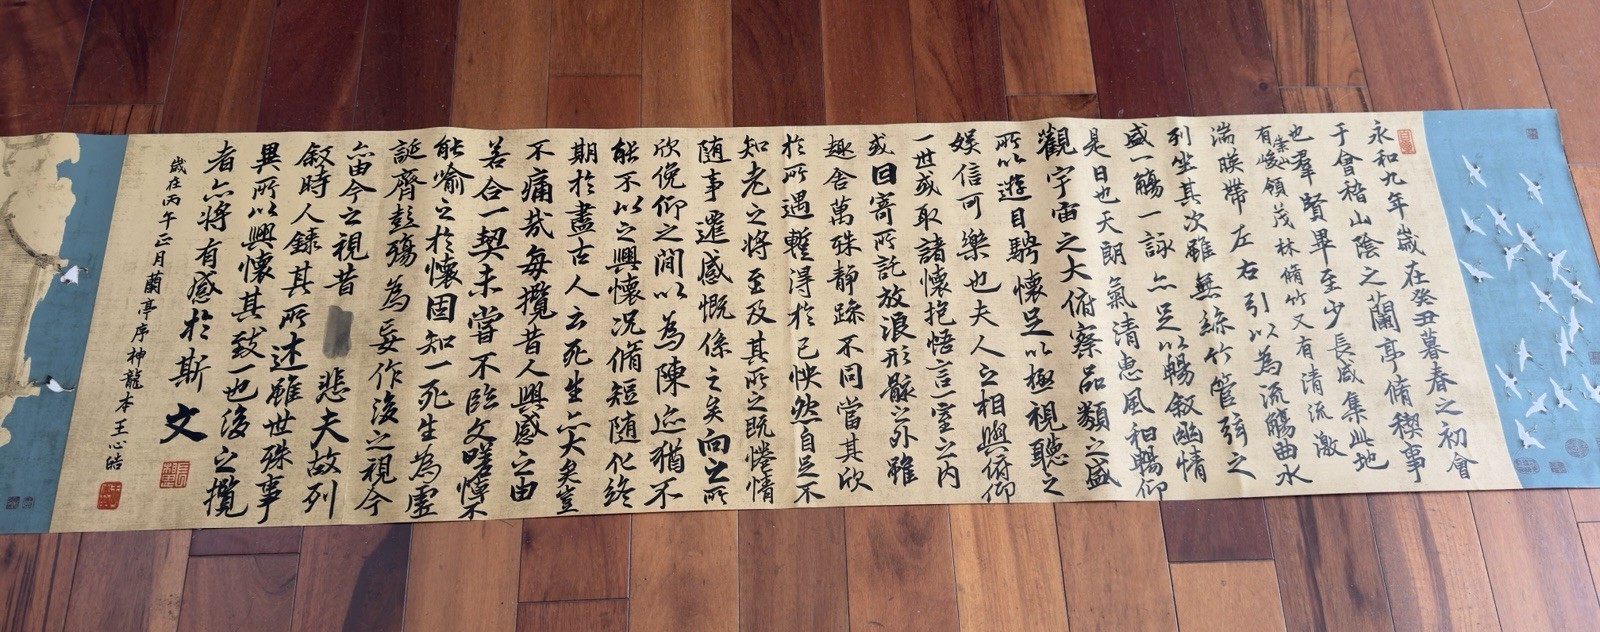 永和九年歲在癸丑暮春之初會
于會稽山陰之蘭亭脩稧事
也羣賢畢至少長咸集此地
有崇山峻領茂林脩竹又有清流激
湍暎帶左右引以為流觴曲水
列坐其次雖無絲竹管弦之
盛一觴一詠亦足以暢敘幽情
是日也天朗氣清惠風和暢仰
觀宇宙之大俯察品類之盛
所以遊目騁懷足以極視聽之
娛信可樂也夫人之相與俯仰
一世或取諸懷抱悟言一室之內
或因寄所託放浪形骸之外雖
趣舍萬殊靜躁不同當其欣
於所遇蹔得於己怏然自足不
知老之將至及其所之既惓情
隨事遷感慨係之矣向之所
欣俛仰之間以為陳迹猶不
能不以之興懷況脩短隨化終
期於盡古人云死生亦大矣豈
不痛哉每攬昔人興感之由
若合一契未嘗不臨文嗟悼不
能喻之於懷固知一死生為虛
誕齊彭殤為妄作後之視今
亦由今之視昔 悲夫故列
敘時人錄其所述雖世殊事
異所以興懷其致一也後之攬
者亦將有感於斯文
歲在丙午正月蘭亭序神龍本王心皓